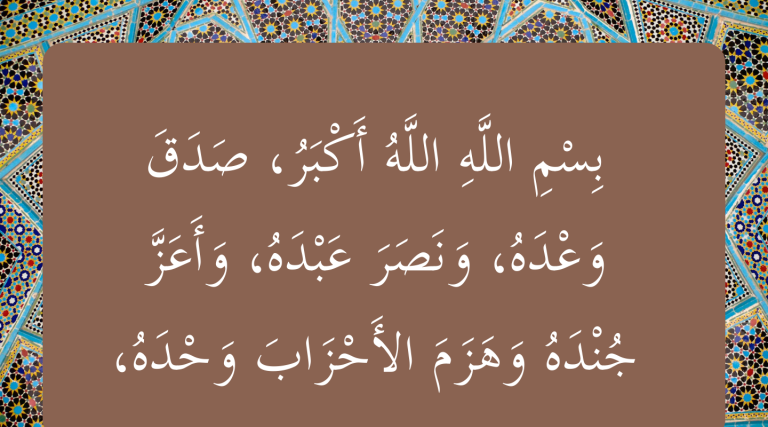 بِسْمِ اللَّهِ اللَّهُ أَكْبَرُ، صَدَقَ
وَعْدَهُ، وَنَصَرَ عَبْدَهُ، وَأَعَزَّ
جُنْدَهُ وَهَزَمَ الأَحْزَابَ وَحْدَهُ،